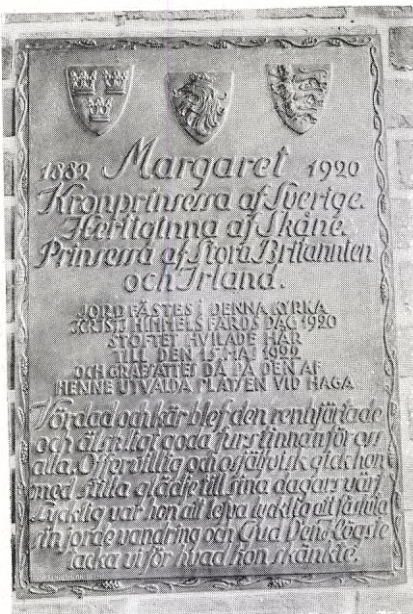 1882 Margaret 1920
Kronprinsessa af Sverige.
Hertiginna af Skåne.
Prinsessa af Stora Britannien
och Irland.
JORDFÄSTES I DENNA KYRKA
KRISTI HIMMELSFÄRDS DAG 1920
STOFTET HVILADE HÄR
TILL DEN 15 MAJ 1922
OCH GRAFSATTES DÅ PÅ DEN AF
HENNE UTVALDA PLATSEN VID HAGA
Vördad och kär blef den renhjärtade
och älskligt goda furstinnan för oss
alla. Offervillig och osjälvisk gick hon
med stilla glädje till sina dagars värf
Lycklig var hon att lefva lycklig att få sluta
sin jordevandring och Gud Den Högste
tacka vi för hvad hon skänkte.